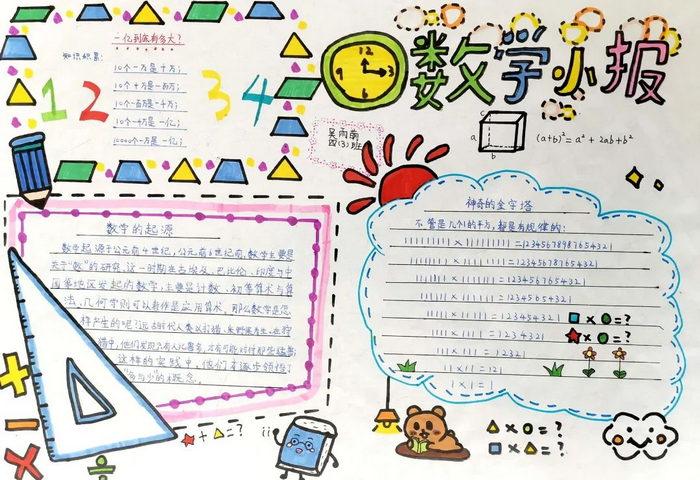 数学小报
12
3
6
9
一亿到底有多大？
知识积累：
10个一万是十万；
10个十万是一百万；
10个一百万是一千万；
10个一千万是一亿；
10000个一万是一亿；
1 2 3 4
吴雨萌
四(3)班
a
b
c
(a+b)²=a²+2ab+b²
数学的起源
数学起源于公元前4世纪，公元前6世纪前，数学主要是
关于"数"的研究，这一时期在古埃及、巴比伦、印度与中
国等地区发起的数学，主要是计数、初等算术与算
法，几何学则可以看作是应用算术，那么数学是怎
样产生的呢？
这样的实践中，他们才逐步领悟了
"多与少"的概念。
神奇的金字塔
不管是几个1的平方，都是有规律的：
111111111×111111111=12345678987654321
=123456787654321
=1234567654321
=12345654321
11111×11111=123454321
1111×1111=1234321
111×111=12321
11×11=121
1×1=1
×=?
×=?
+=?
×=?
×=?
+
−
×
÷